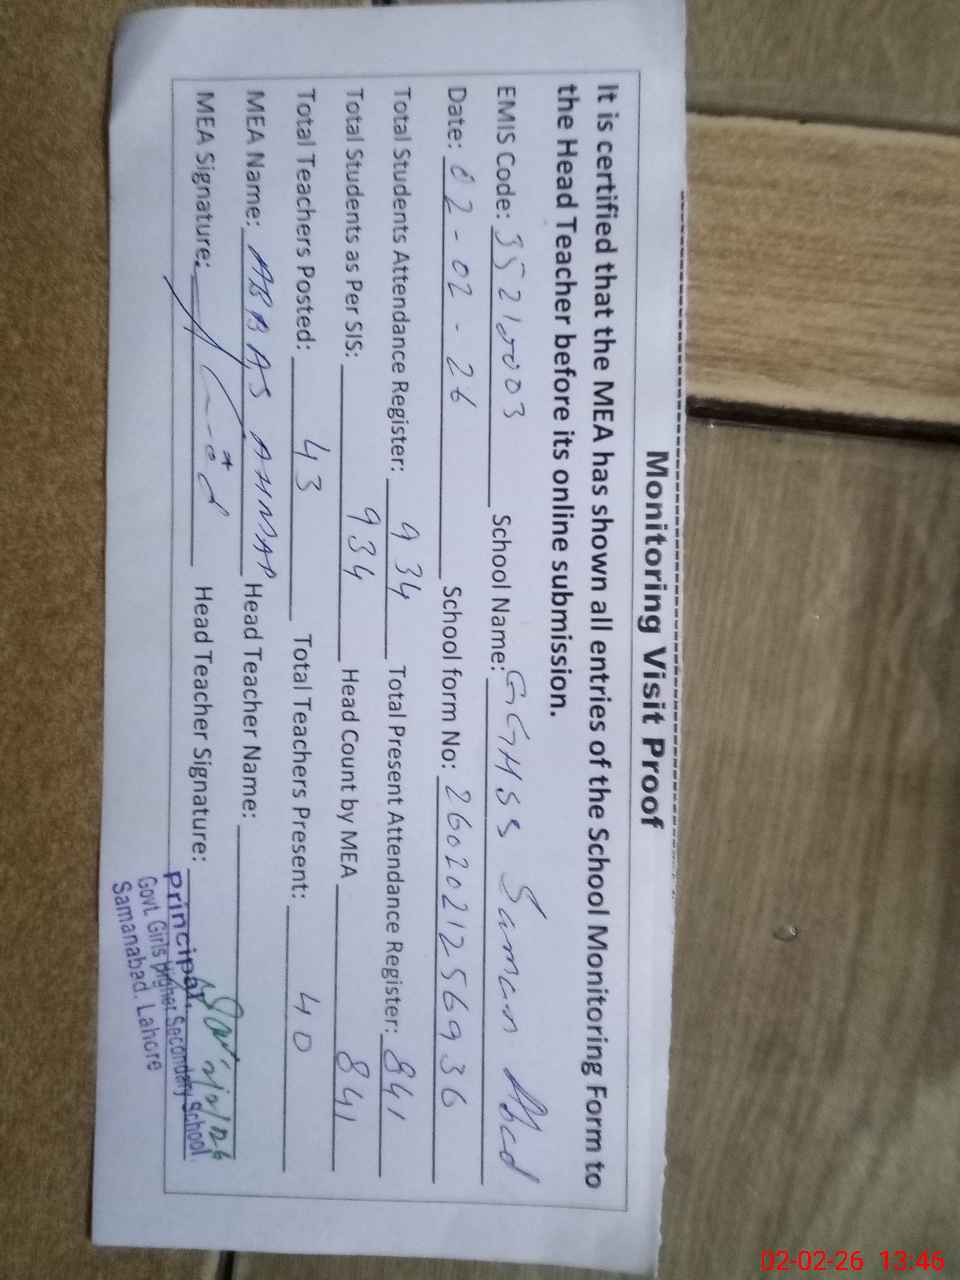 Monitoring Visit Proof
It is certified that the MEA has shown all entries of the School Monitoring Form to
the Head Teacher before its online submission.
EMIS Code: 35210003 School Name: GGHSS Saman Abad
Date: 02-02-26 School form No: 26020212569936
Total Students Attendance Register: 934 Total Present Attendance Register: 841
Total Students as Per SIS: 934 Head Count by MEA 841
Total Teachers Posted: 43 Total Teachers Present: 40
MEA Name: ABBAS AHMAD Head Teacher Name:
MEA Signature: Head Teacher Signature:
Principal
Govt. Girls Higher Secondary School
Samanabad. Lahore
02-02-26 13:46